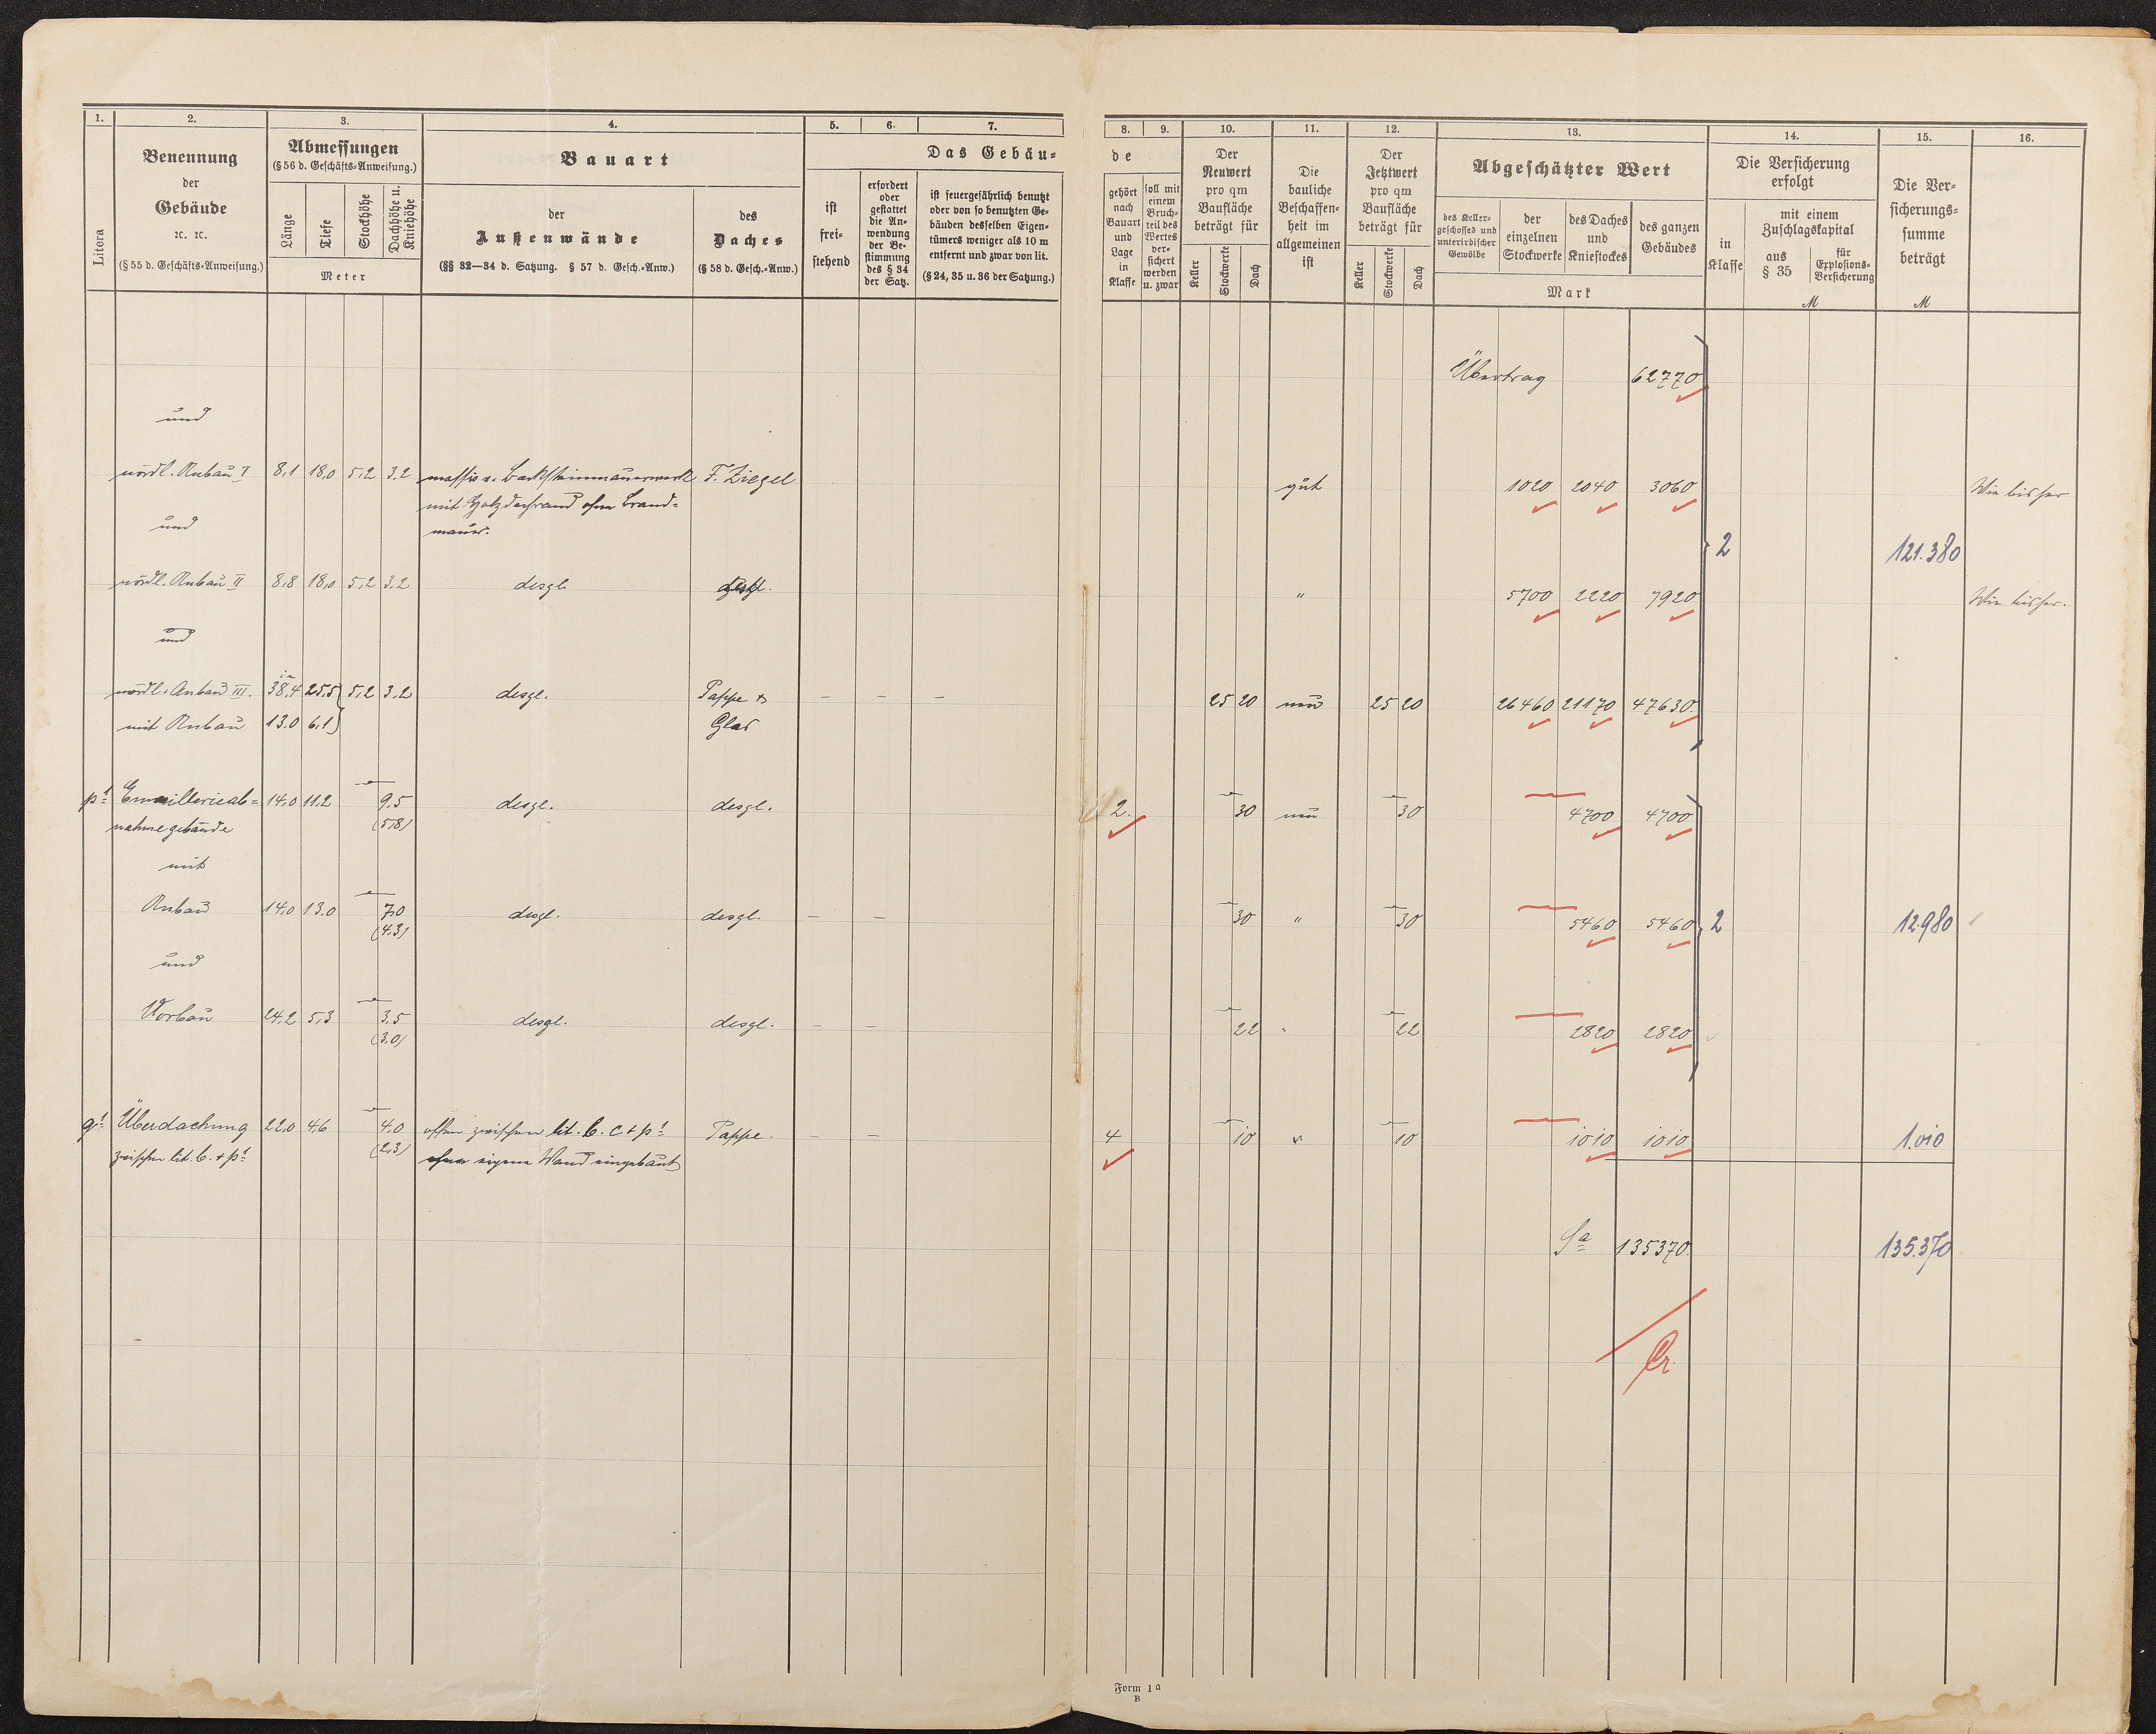 1. 2. 3. 4. 5. 6. 7.
Litera
Benennung
der
Gebäude
ꝛc. ꝛc.
(§ 55 d. Geschäfts-Anweisung.)
Abmessungen
(§ 56 d. Geschäfts-Anweisung.)
Länge
Tiefe
Stockhöhe
Dachhöhe u.
Kniehöhe
Meter
Bauart
der
Außenwände
(§§ 32—34 d. Satzung. § 57 d. Gesch.-Anw.)
des
Daches
(§ 58 d. Gesch.-Anw.)
Das Gebäu-
ist
frei-
stehend
erfordert
oder
gestattet
die An-
wendung
der Be-
stimmung
des § 34
der Satz.
ist feuergefährlich benutzt
oder von so benutzten Ge-
bäuden desselben Eigen-
tümers weniger als 10 m
entfernt und zwar von lit.
(§ 24, 35 u. 36 der Satzung.)
und
nördl. Anbau I 8,1 18,0 5,2 3,2 massiv a. Backsteinmauerwerk F. Ziegel
mit Holzdachrand ohne Brand-
mauer.
und
nördl. Anbau II 8,8 18,0 5,2 3,2 desgl. desgl.
und
nördl. Anbau III. 38,4 25,5 5,2 3,2 desgl. Pappe &
mit Anbau 13.0 6,1 Glas
p¹ Emaillerieab- 14,0 11,2 — 9,5 desgl. desgl.
nahmegebäude (5,8)
mit
Anbau 14,0 13,0 — 7,0 desgl. desgl. — —
(4,3)
und
Vorbau 24,2 5,3 — 3,5 desgl. desgl. — —
(3,0)
q¹ Überdachung 22,0 4,6 — 4,0 offen zwischen lit. b. c + p¹ Pappe. — —
zwischen lit. b. + p¹ (2,3) ohne eigene Wand eingebaut
8. 9. 10. 11. 12. 13. 14. 15. 16.
de
gehört
nach
Bauart
und
Lage
in
Klasse
soll mit
einem
Bruch-
teil des
Wertes
ver-
sichert
werden
u. zwar
Der
Neuwert
pro qm
Baufläche
beträgt für
Keller
Stockwerke
Dach
Die
bauliche
Beschaffen-
heit im
allgemeinen
ist
Der
Jetztwert
pro qm
Baufläche
beträgt für
Keller
Stockwerke
Dach
Abgeschätzter Wert
des Keller-
geschosses und
unterirdischer
Gewölbe
der
einzelnen
Stockwerke
des Daches
und
Kniestockes
des ganzen
Gebäudes
Mark
Die Versicherung
erfolgt
in
Klasse
mit einem
Zuschlagskapital
aus
§ 35
für
Explosions-
Versicherung
M
Die Ver-
sicherungs-
summe
beträgt
M
Übertrag 62770
gut 1020 2040 3060 Wie bisher
2 121.380
" 5700 2220 7920 Wie bisher.
25 20 neu 25 20 26460 21170 47630
2. — 30 neu — 30 — 4700 4700
— 30 " — 30 — 5460 5460 2 12.980
— 22 " — 22 — 2820 2820
4 — 10 " — 10 — 1010 1010 1.010
Sa 135370 135.370
Form 1a
B